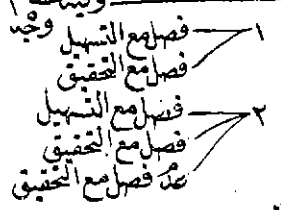 وجه
١ فصل مع التسهيل
فصل مع التحقيق
فصل مع التسهيل
٢ فصل مع التحقيق
عدم فصل مع التحقيق